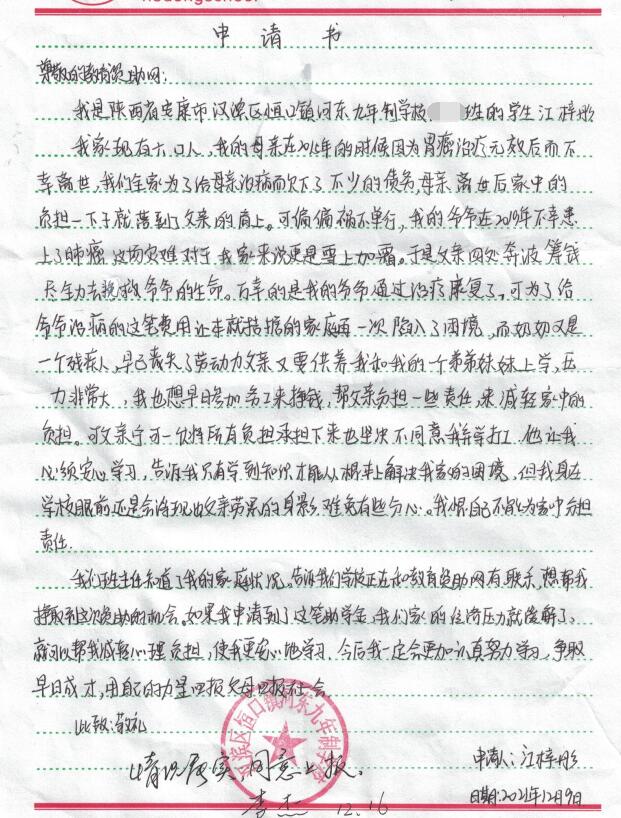 申请书
尊敬的教育资助网:
我是陕西省安康市汉滨区恒口镇河东九年制学校 班的学生江梓彤
我家现有六口人,我的母亲在2016年的时候因为胃癌治疗无效后而不
幸离世,我们全家为了给母亲治病而欠下了不少的债务,母亲离世后家中的
负担一下子就落到了父亲的肩上。可偏偏祸不单行,我的爷爷在2019年不幸患
上了肺癌,这场灾难对于我家来说更是雪上加霜。于是父亲四处奔波筹钱
尽全力去挽救爷爷的生命。万幸的是我的爷爷通过治疗康复了,可为了给
爷爷治病的这笔费用让本就拮据的家庭再一次陷入了困境,而奶奶又是
一个残疾人,早已丧失了劳动力父亲又要供养我和我的一个弟弟妹妹上学,压
力非常大,我也想早日参加务工来挣钱,帮父亲分担一些责任,来减轻家中的
负担。可父亲宁可一次性所有负担承担下来也坚决不同意我弃学打工,他让我
必须安心学习,告诉我只有学到知识才能从根本上解决我家的困境,但我身在
学校眼前还是会浮现出父亲劳累的身影,难免有些分心。我恨自己不能为家中分担
责任.
我们班主任知道了我的家庭状况。告诉我们学校正在和教育资助网有联系,想帮我
争取到这次资助的机会。如果我申请到了这笔助学金,我们家的经济压力就缓解了,
就可以帮我减轻心理负担,使我更安心地学习,今后我一定会更加认真努力学习,争取
早日成才,用自己的力量回报父母回报社会
此致:敬礼
汉滨区恒口镇河东九年制学校
情况属实,同意上报。
申请人:江梓彤
李杰 12.16
日期:2021年12月9日